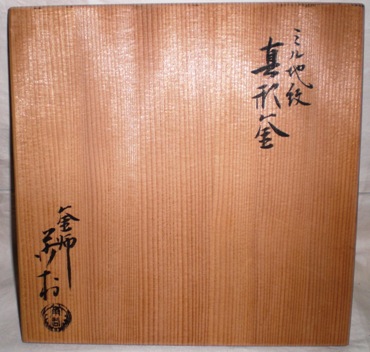 ミル地紋
真形釜
釜師